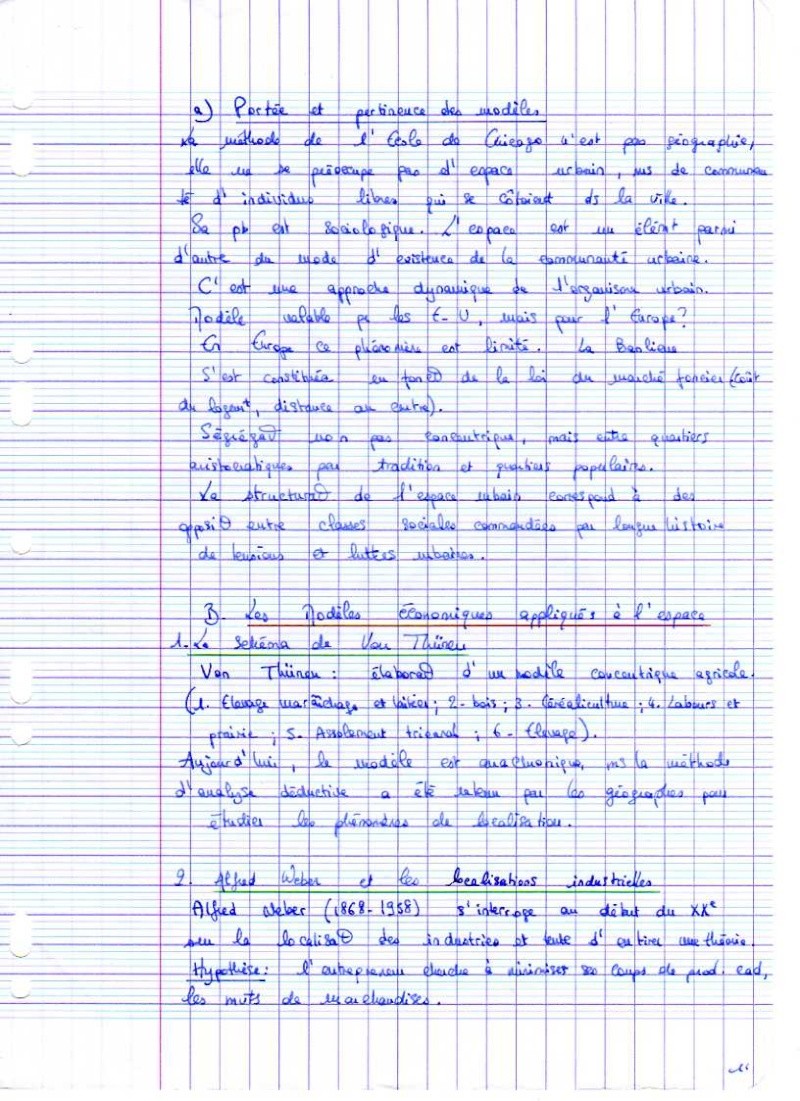 a) Portée et pertinence des modèles
La méthode de l'Ecole de Chicago n'est pas géographie,
elle ne se préocupe pas d'espace urbain, ms de communau
té d'individus libres qui se côtoient ds la ville.
Sa pb est sociologique. L'espace est un élémt parmi
d'autre du mode d'existence de la communauté urbaine.
C'est une approche dynamique de l'organisme urbain.
Modèle valable pr les E-U, mais pour l'Europe?
En Europe ce phénomène est limité. La Banlieue
S'est constituée en de la loi du marché foncier (coût
du logemt, distance au centre).
non pas concentrique, mais entre quartiers
aristocratiques par tradition et quartiers populaires.
La de l'espace urbain correspond à des
entre classes sociales commandées par longue histoire
de tensions et luttes urbaines.
B. Les Modèles économiques appliqués à l'espace
1. Le schéma de Von Thünen
Von Thünen : d'un modèle concentrique agricole.
(1. Elevage maraîchage et laitier; 2- bois; 3. Céréaliculture; 4. Labours et
prairie; 5. Assolement triennal; 6- Elevage).
Aujourd'hui, le modèle est anachronique, ms la méthode
d'analyse déductive a été retenu par les géographes pour
étudier les phénomènes de localisation.
2. Alfred Weber et les localisations industrielles
Alfred Weber (1868-1958) s'interroge au début du XXe
sur la des industries et tente d'en tirer une théorie.
Hypothèse: l'entrepreneur cherche à minimiser ses coups de prod. cad,
les mvts de marchandises.